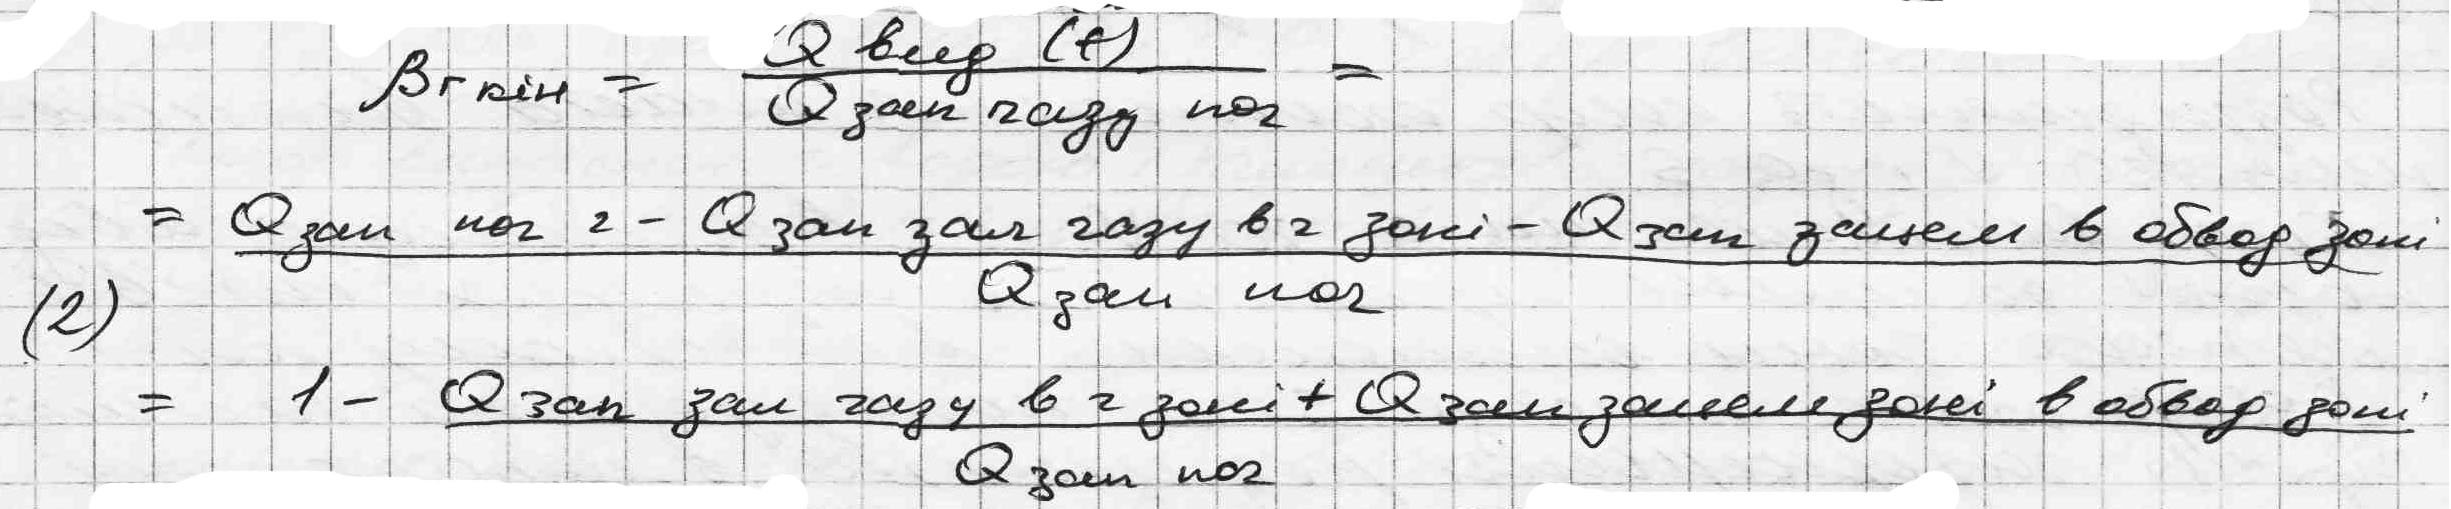 βг кін = Q вид (t) / Q зап газу поч =
= Q зап поч г - Q зап зал газу в г зоні - Q зап защем в обвод зоні / Q зап поч
(2)
= 1 - Q зап зал газу в г зоні + Q зап защем зоні в обвод зоні / Q зап поч